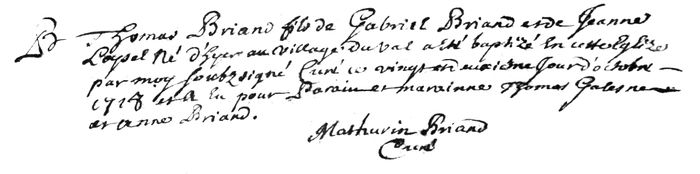 B Thomas Briand fils de Gabriel Briand et de Jeanne
Né d'hyer au village du val a été baptizé En cette Eglize
par moy soubzsigné Curé ce vingt et deuxiesme Jour d'octobre
1718 et a Eu pour Parain et maraine Thomas Galesne
et anne Briand.
Mathurin Briand
Curé